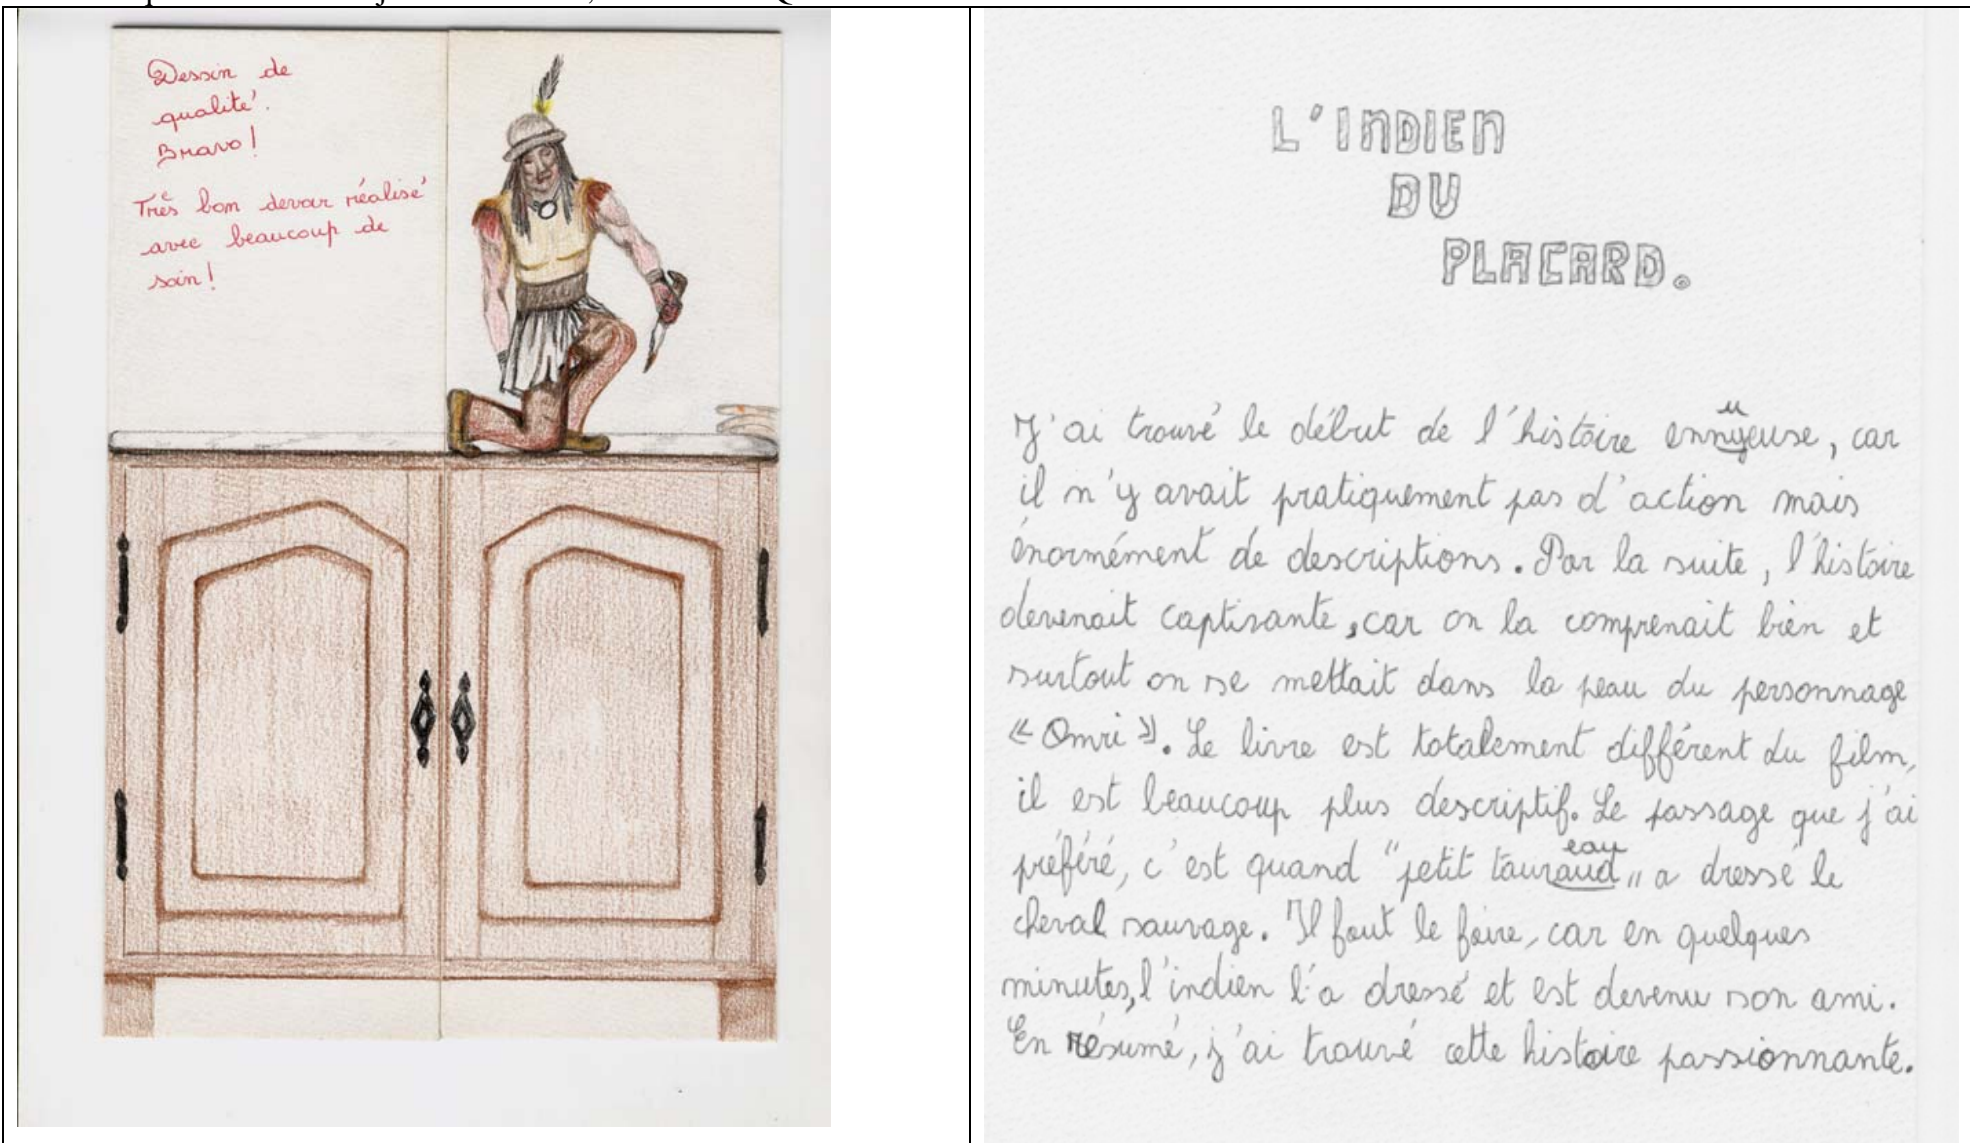 Dessin de
qualité.
Bravo!
Très bon devoir réalisé
avec beaucoup de
soin!
L'INDIEN
DU
PLACARD.
J'ai trouvé le début de l'histoire ennyeuse, car
u
il n'y avait pratiquement pas d'action mais
énormément de descriptions. Par la suite, l'histoire
devenait captivante, car on la comprenait bien et
surtout on se mettait dans la peau du personnage
« Omri ». Le livre est totalement différent du film,
il est beaucoup plus descriptif. Le passage que j'ai
préféré, c'est quand "petit tauraud" a dressé le
eau
cheval sauvage. Il faut le faire, car en quelques
minutes, l'indien l'a dressé et est devenu son ami.
En résumé, j'ai trouvé cette histoire passionnante.